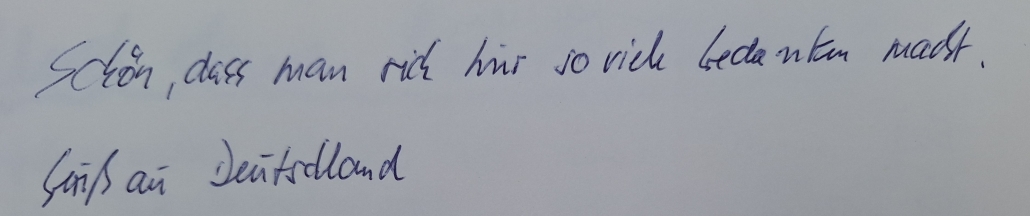 Schön, dass man sich hier so viele Gedanken macht.
Gruß an Deutschland